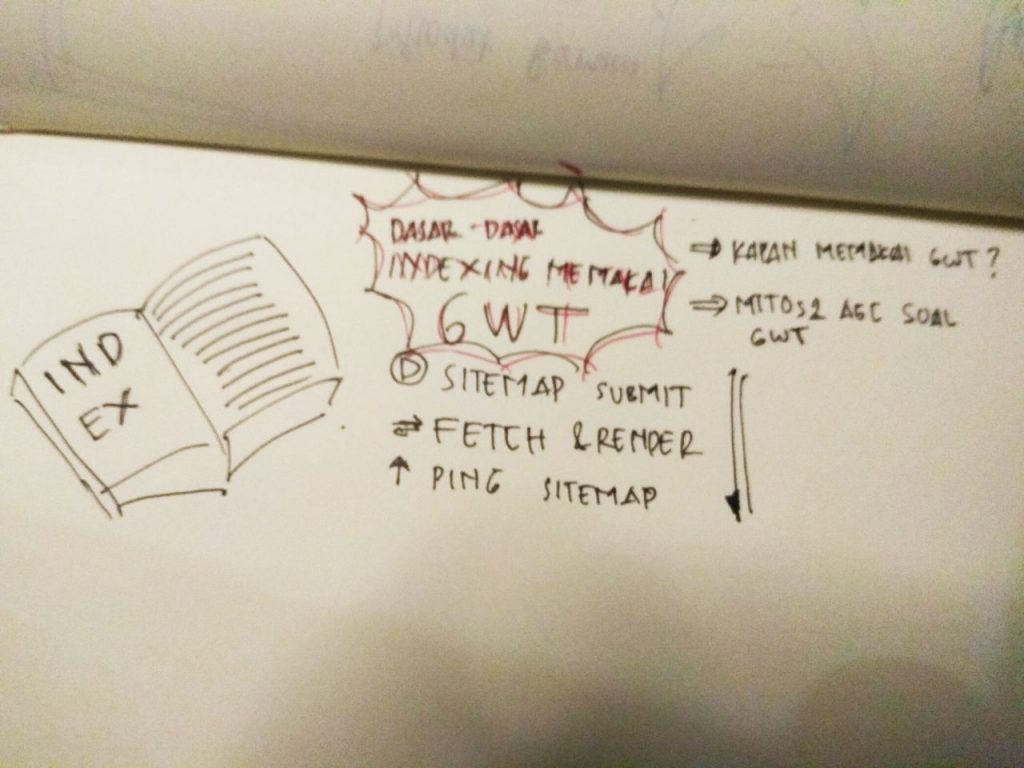 IND
EX
DASAR-DASAR
INDEXING MEMAKAI
GWT
⇒ KAPAN MEMAKAI GWT?
⇒ MITOS2 AGC SOAL
GWT
SITEMAP SUBMIT
⇄ FETCH & RENDER
↑ PING SITEMAP